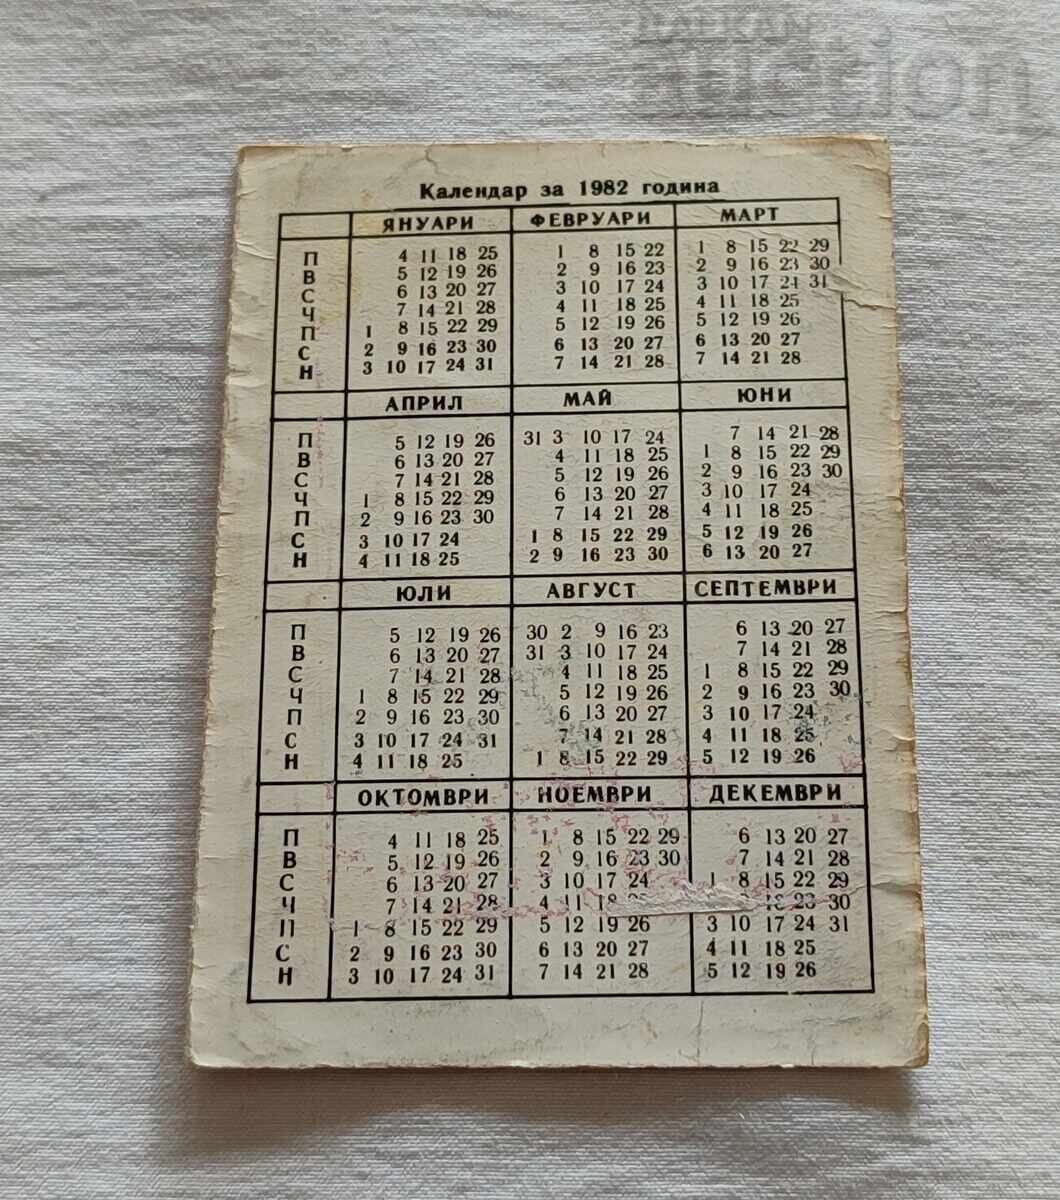 BALKAN
auction
Календар за 1982 година
ЯНУАРИ ФЕВРУАРИ МАРТ
П 4 11 18 25 1 8 15 22 1 8 15 22 29
В 5 12 19 26 2 9 16 23 2 9 16 23 30
С 6 13 20 27 3 10 17 24 3 10 17 24 31
Ч 7 14 21 28 4 11 18 25 4 11 18 25
П 1 8 15 22 29 5 12 19 26 5 12 19 26
С 2 9 16 23 30 6 13 20 27 6 13 20 27
Н 3 10 17 24 31 7 14 21 28 7 14 21 28
АПРИЛ МАЙ ЮНИ
П 5 12 19 26 31 3 10 17 24 7 14 21 28
В 6 13 20 27 4 11 18 25 1 8 15 22 29
С 7 14 21 28 5 12 19 26 2 9 16 23 30
Ч 1 8 15 22 29 6 13 20 27 3 10 17 24
П 2 9 16 23 30 7 14 21 28 4 11 18 25
С 3 10 17 24 1 8 15 22 29 5 12 19 26
Н 4 11 18 25 2 9 16 23 30 6 13 20 27
ЮЛИ АВГУСТ СЕПТЕМВРИ
П 5 12 19 26 30 2 9 16 23 6 13 20 27
В 6 13 20 27 31 3 10 17 24 7 14 21 28
С 7 14 21 28 4 11 18 25 1 8 15 22 29
Ч 1 8 15 22 29 5 12 19 26 2 9 16 23 30
П 2 9 16 23 30 6 13 20 27 3 10 17 24
С 3 10 17 24 31 7 14 21 28 4 11 18 25
Н 4 11 18 25 1 8 15 22 29 5 12 19 26
ОКТОМВРИ НОЕМВРИ ДЕКЕМВРИ
П 4 11 18 25 1 8 15 22 29 6 13 20 27
В 5 12 19 26 2 9 16 23 30 7 14 21 28
С 6 13 20 27 3 10 17 24 1 8 15 22 29
Ч 7 14 21 28 4 11 18 23 30
П 1 8 15 22 29 5 12 19 26 3 10 17 24 31
С 2 9 16 23 30 6 13 20 27 4 11 18 25
Н 3 10 17 24 31 7 14 21 28 5 12 19 26